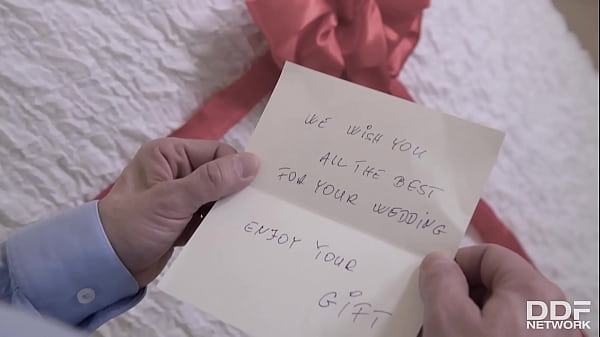 WE WISH YOU
ALL THE BEST
FOR YOUR WEDDING
ENJOY YOUR
GIFT
DDF
NETWORK